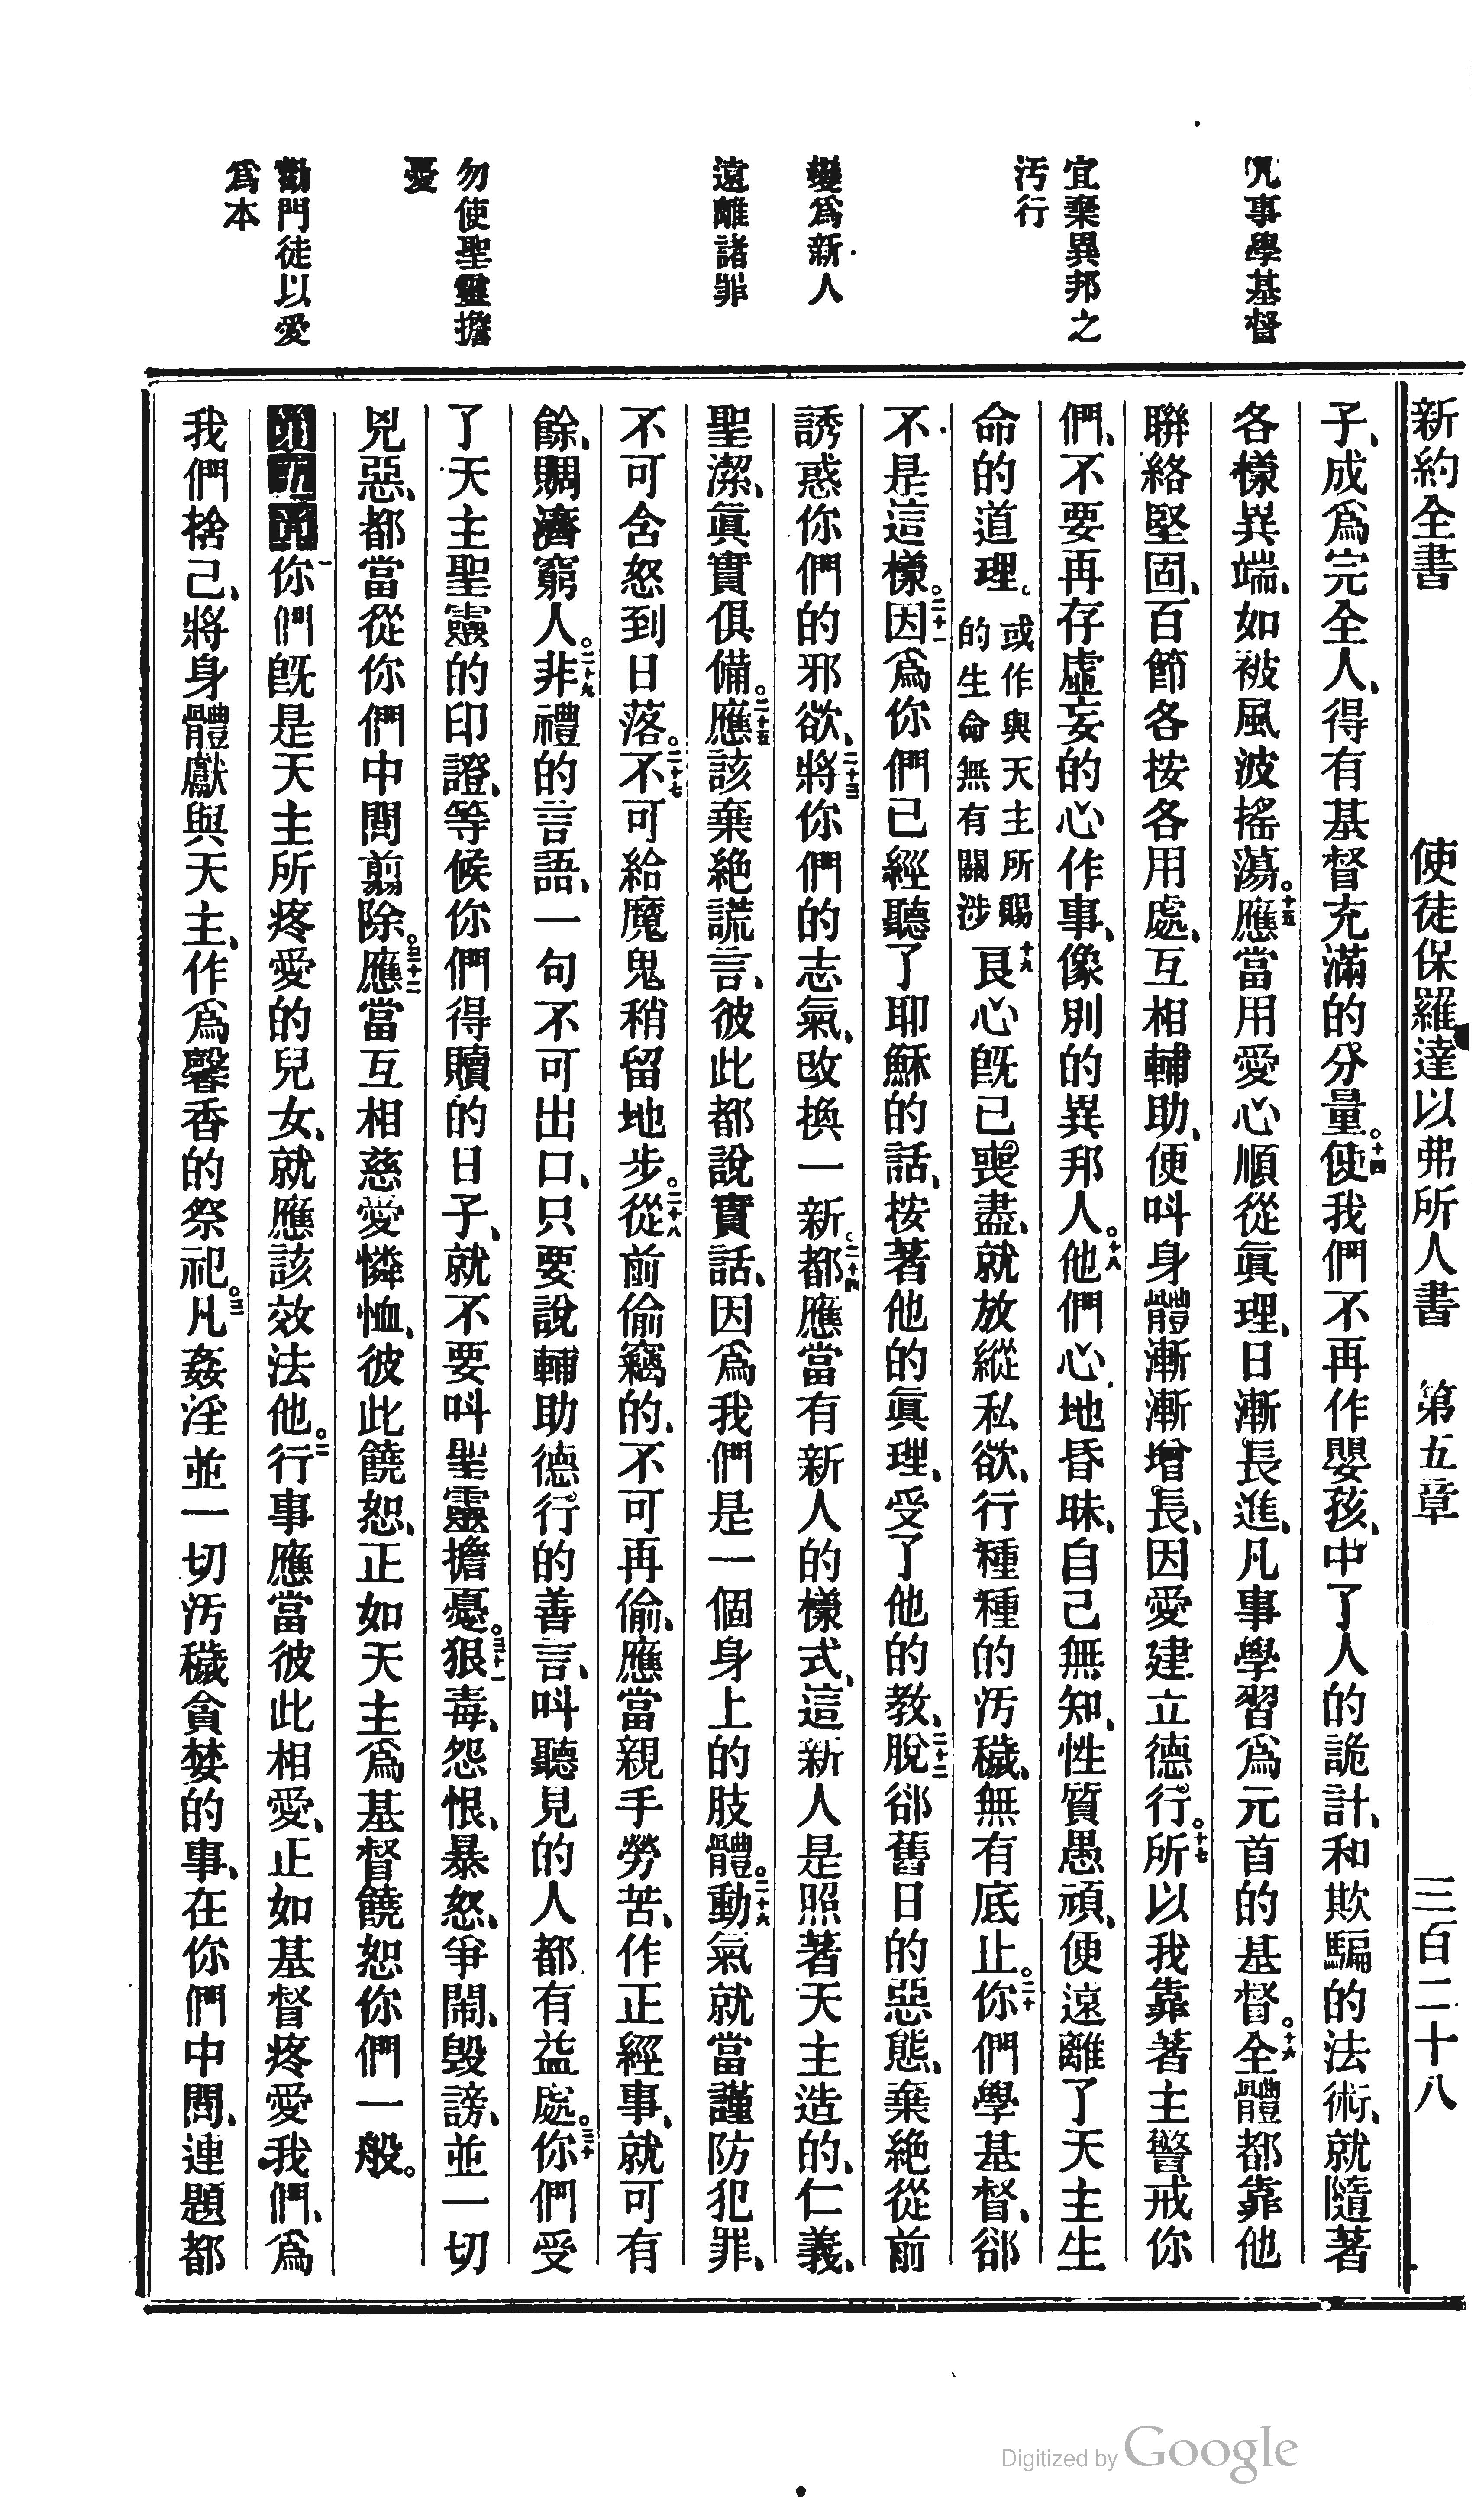 新約全書 使徒保羅達以弗所人書 第五章 三百二十八
凡事學基督
宜棄異邦之
汚行
變爲新人
遠離諸罪
勿使聖靈擔
憂
勸門徒以愛
爲本
子、成爲完全人、得有基督充滿的分量。十四使我們不再作嬰孩、中了人的詭計、和欺騙的法術、就隨著
各樣異端、如被風波搖蕩。十五應當用愛心順從眞理、日漸長進、凡事學習爲元首的基督。十六全體都靠他
聯絡堅固、百節各按各用處、互相輔助、便呌身體漸漸增長、因愛建立德行。十七所以我靠著主警戒你
們、不要再存虛妄的心作事、像別的異邦人。十八他們心地昏昧、自己無知、性質愚頑、便遠離了天主生
命的道理。或作與天主所賜的生命無有關涉十九良心旣已喪盡、就放縱私欲、行種種的汚穢、無有底止。二十你們學基督、郤
不是這樣。二十一因爲你們已經聽了耶穌的話、按著他的眞理、受了他的教、二十二脫郤舊日的惡態、棄絕從前
誘惑你們的邪欲、二十三將你們的志氣、改換一新。二十四都應當有新人的樣式、這新人是照著天主造的、仁義、
聖潔、眞實俱備。二十五應該棄絕謊言、彼此都說實話、因爲我們是一個身上的肢體。二十六動氣就當謹防犯罪、
不可含怒到日落。二十七不可給魔鬼稍留地步。二十八從前偷竊的、不可再偷、應當親手勞苦、作正經事、就可有
餘、賙濟窮人。二十九非禮的言語、一句不可出口、只要說輔助德行的善言、呌聽見的人都有益處。三十你們受
了天主聖靈的印證、等候你們得贖的日子、就不要呌聖靈擔憂。三十一狠毒、怨恨、暴怒、爭鬧、毀謗、並一切
兇惡、都當從你們中間翦除。三十二應當互相慈愛憐恤、彼此饒恕、正如天主爲基督饒恕你們一般。
一你們旣是天主所疼愛的兒女、就應該效法他。二行事應當彼此相愛、正如基督疼愛我們、爲
我們捨己、將身體獻與天主、作爲馨香的祭祀。三凡姦淫並一切汚穢貪婪的事、在你們中間、連題都
Digitized by Google